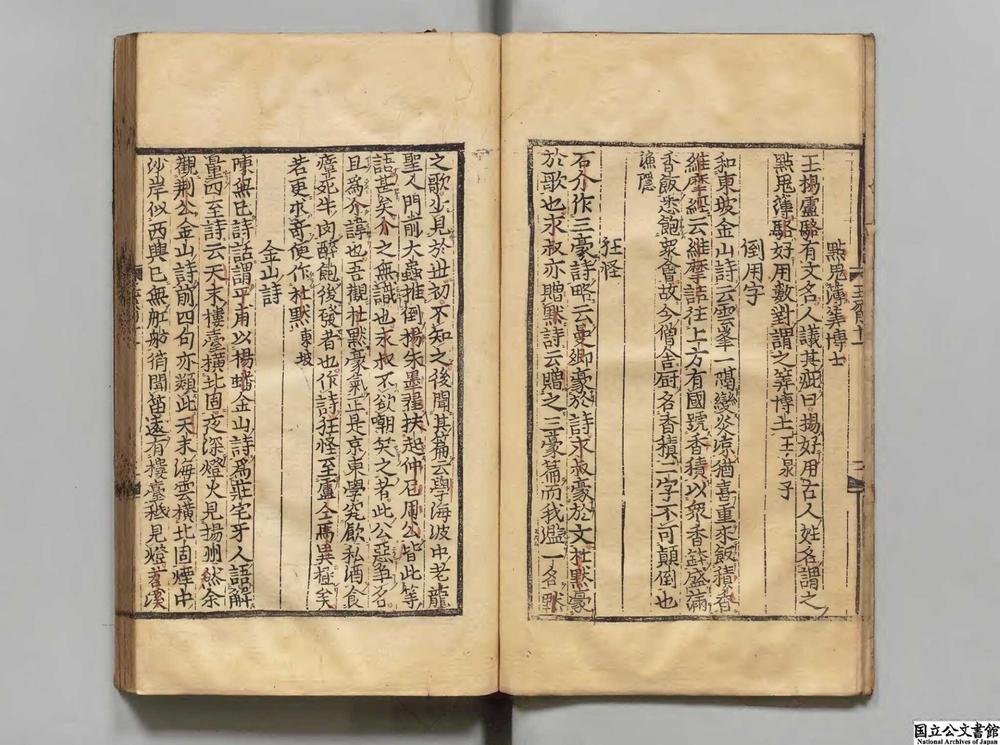 點鬼簿算博士
王揚盧駱有文名人議其疵曰揚好用古人姓名謂之
點鬼簿駱好用數對謂之筭博士王泉子
倒用字
和東坡金山詩云雲峯一隔變炎凉猶喜重來飯積香
維摩經云維摩詰往上方有國號香積以衆香鉢盛滿
香飯悉飽衆會故今僧舍厨名香積二字不可顛倒也
漁隱
狂怪
石介作三豪詩略云曼卿豪於詩永叔豪於文杜默豪
於歌也永叔亦贈默詩云贈之三豪篇而我濫一名默
之歌少見於世初不知之後聞其篇云學海波中老龍
聖人門前大蟲推倒揚朱墨翟扶起仲尼周公皆此等
語甚矣介之無識也永叔不欲嘲笑之者此公惡爭名
且爲介諱也吾觀杜默豪氣正是京東學究飲私酒食
瘴死牛肉醉飽後發者也作詩狂怪至盧仝馬異極矣
若更求奇便作杜默東坡
金山詩
陳無已詩話謂平甫以揚蟠金山詩爲莊宅牙人語解
量四至詩云天末樓臺橫北固夜深燈火見揚州然余
觀荆公金山詩前四句亦類此天末海雲橫北固煙中
沙岸似西興已無舡舫猶聞笛遠有樓臺秪見燈苕溪
国立公文書館
National Archives of Japan